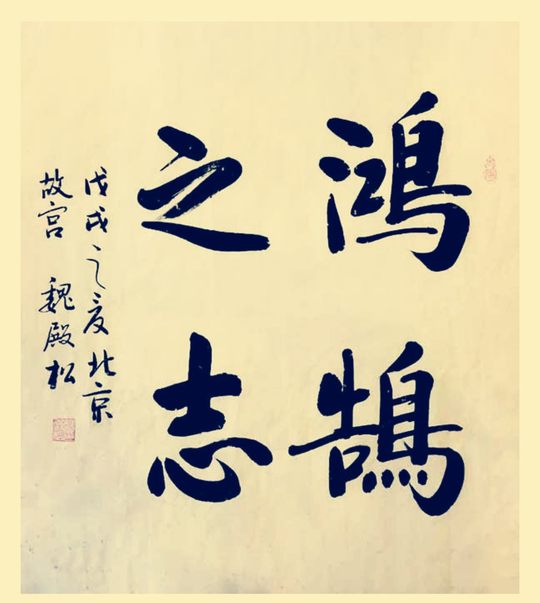 鸿鹄
之志
戊戌之夏北京
故宫 魏殿松